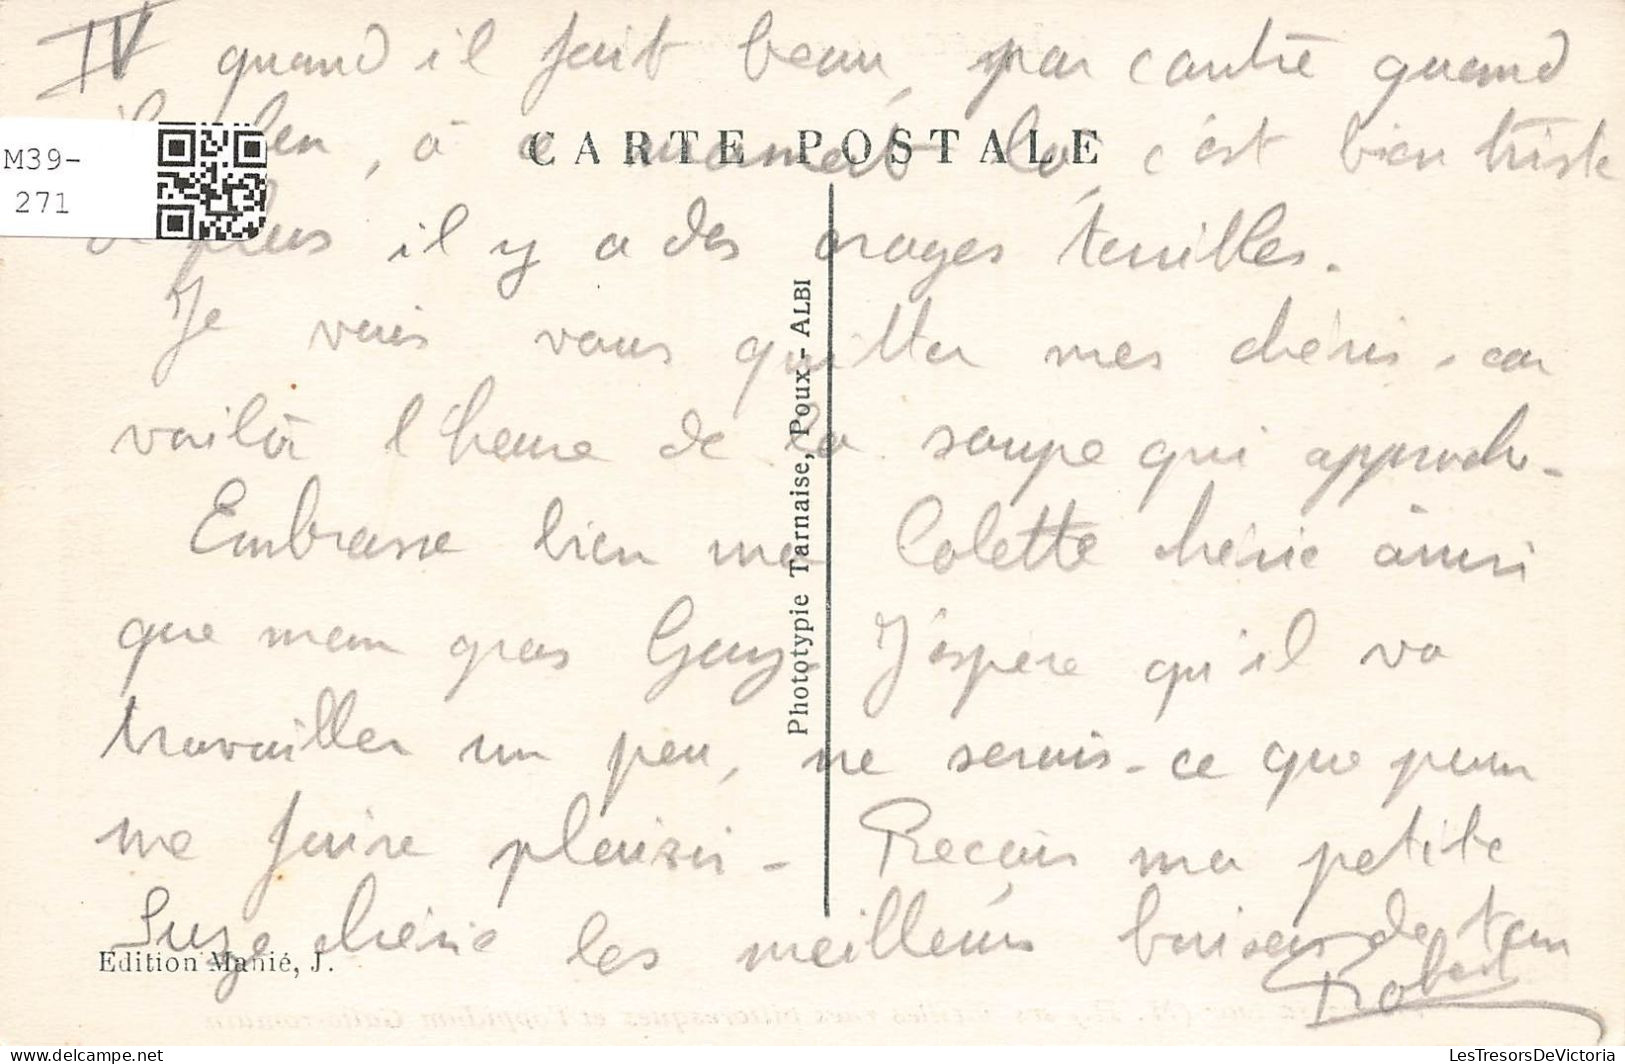 IV quand il fait beau, par contre quand
CARTE POSTALE
à ce moment là, c'est bien triste
M39-
271
plus il y a des orages terribles.
Je vais vous quitter mes chéris, car
voilà l'heure de la soupe qui approche.
Embrasse bien ma Colette chérie ainsi
que mon gros Guy. J'espère qu'il va
travailler un peu, ne serais-ce que pour
me faire plaisir - Reçois ma petite
Suze chérie les meilleurs baisers de ton
Robert
Phototypie Tarnaise, Poux - ALBI
Edition Manié, J.
LesTresorsDeVictoria
https://www.delcampe.net